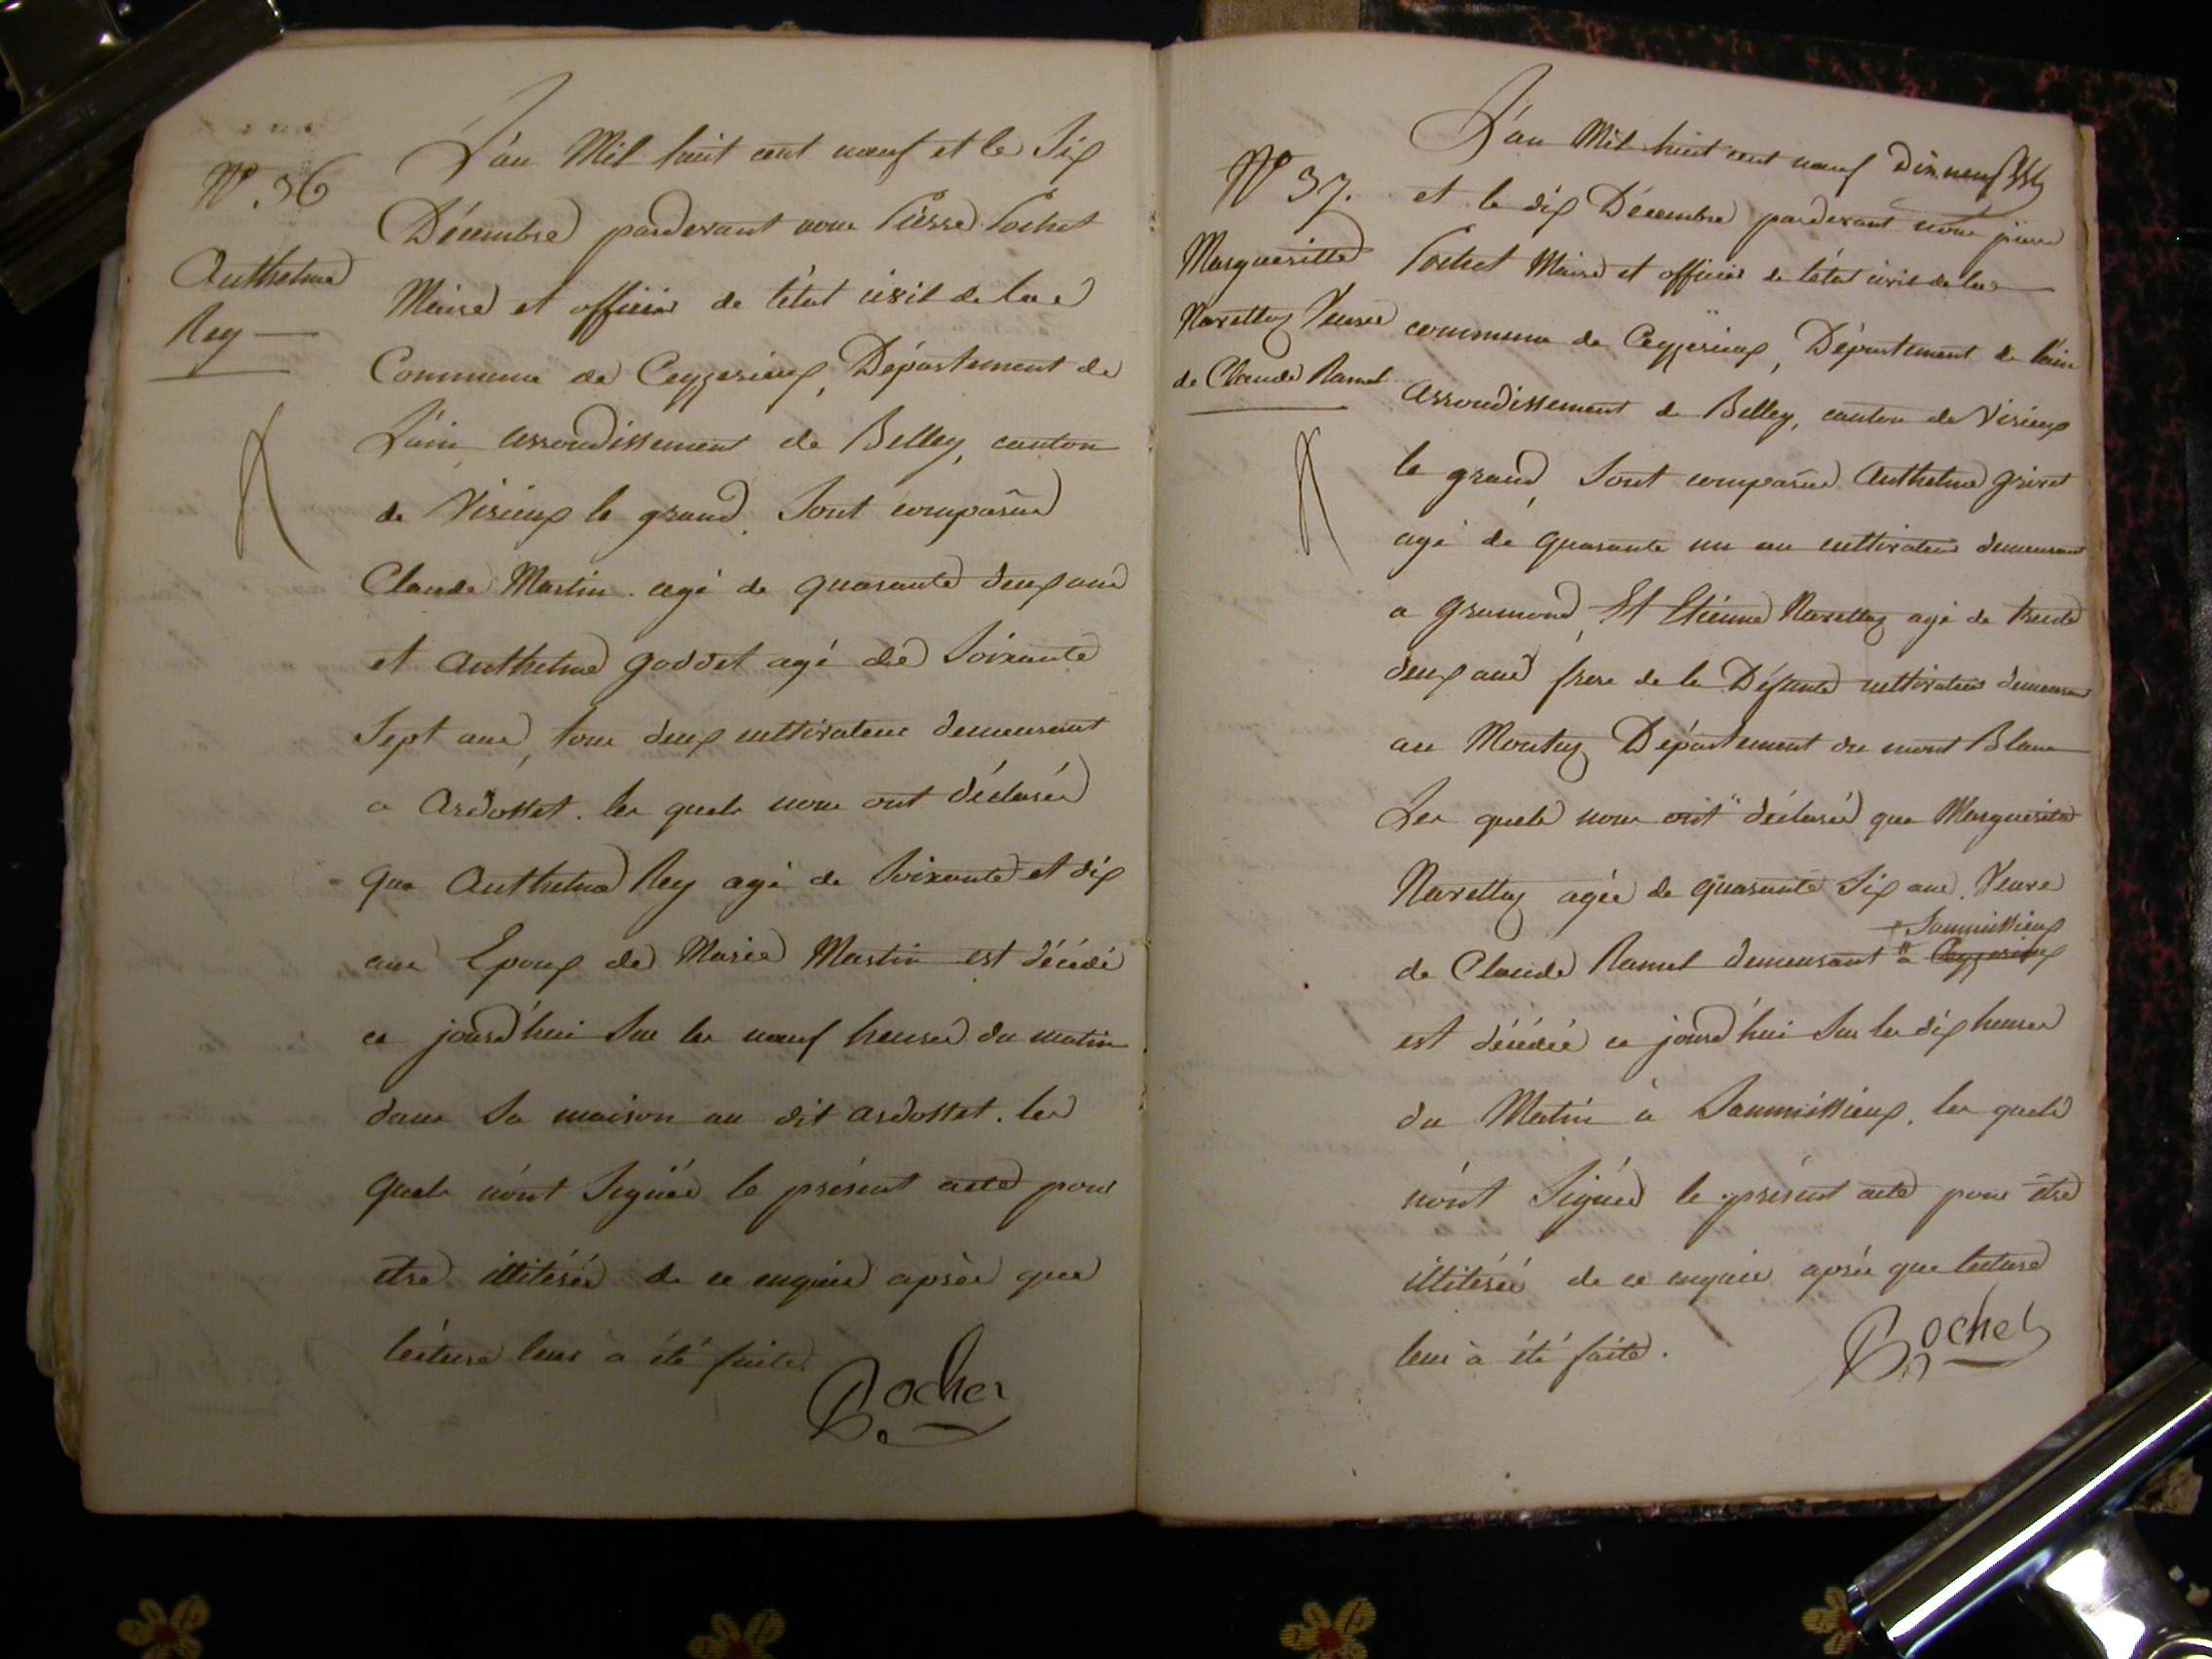 N° 36
Anthelme
Rey
L'an Mil huit cent nœuf et le Six
Décembre pardevant nous Pierre Pochet
Maire et officier de l'état civil de la
Commune de Ceyzerieux, Département de
L'ain arrondissement de Belley, canton
de Virieux le grand, Sont comparus
Claude Martin agé de quarante deux ans
et Anthelme goddet agé de Soixante
Sept ans, tous deux cultivateurs demeurant
a Ardosset. les quels nous ont déclarés
que Anthelme Rey agé de Soixante et dix
ans Epoux de Marie Martin est décédé
ce jourd'hui Sur les nœuf heures du matin
dans Sa maison au dit ardosset. les
quels n'ont Signés le présent acte pour
etre illitérés de ce enquis après que
lécture leur à été faite.
Pochet
N° 37.
Margueritte
Navettaz Veuve
de Claude Ramel
L'an Mil huit cent nœuf Dix neuf
et le dix Décembre pardevant nous pierre
Pochet Maire et officier de l'état civil de la
commune de Ceyzerieux, Département de l'ain
Arrondissement de Belley, canton de Virieux
le grand, Sont comparus Anthelme grivet
agé de quarante un an cultivateur demeurant
a gramond, Et Etienne Navettaz agé de trente
deux ans frere de la Défunte cultivateur demeurant
au Département du mont Blanc
Les quels nous ont déclarés que Marguerite
Navettaz agée de quarante Six ans. Veuve
+ Sammissieux
de Claude Ramel demeurant a Ceyzerieux
est décédée ce jourd'hui Sur les dix heures
du Matin à Sammissieux. les quels
n'ont Signés le présent acte pour être
illitérés de ce enquis après que lecture
leur à été faite.
Pochet